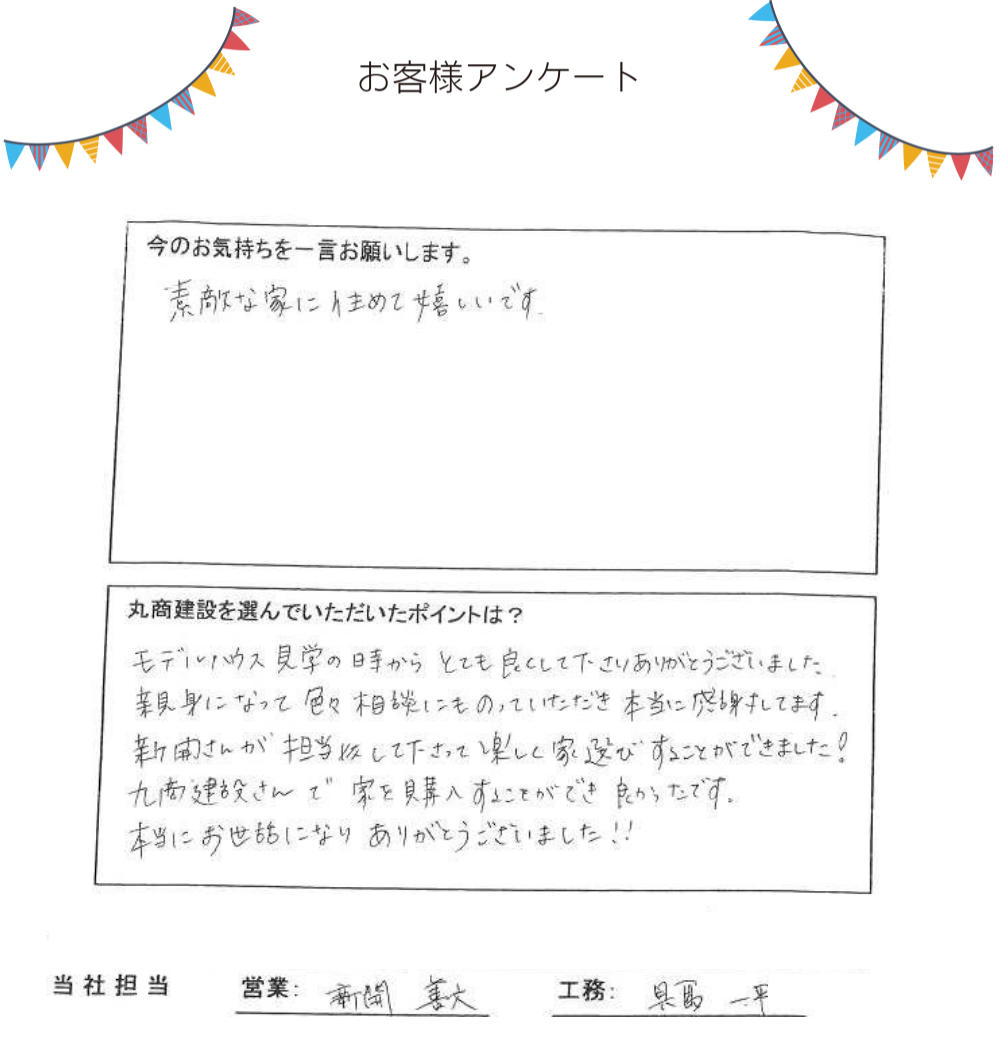 お客様アンケート
今のお気持ちを一言お願いします。
素敵な家に住めて嬉しいです.
丸商建設を選んでいただいたポイントは？
モデルハウス見学の時から とても良くして下さりありがとうございました.
親身になって 色々相談にものっていただき 本当に感謝してます.
新開さんが 担当して下さって楽しく家選びすることができました!
丸商建設さんで 家を購入することができ 良かったです.
本当にお世話になり ありがとうございました!!
当社担当 営業: 新開 善大 工務: 一平